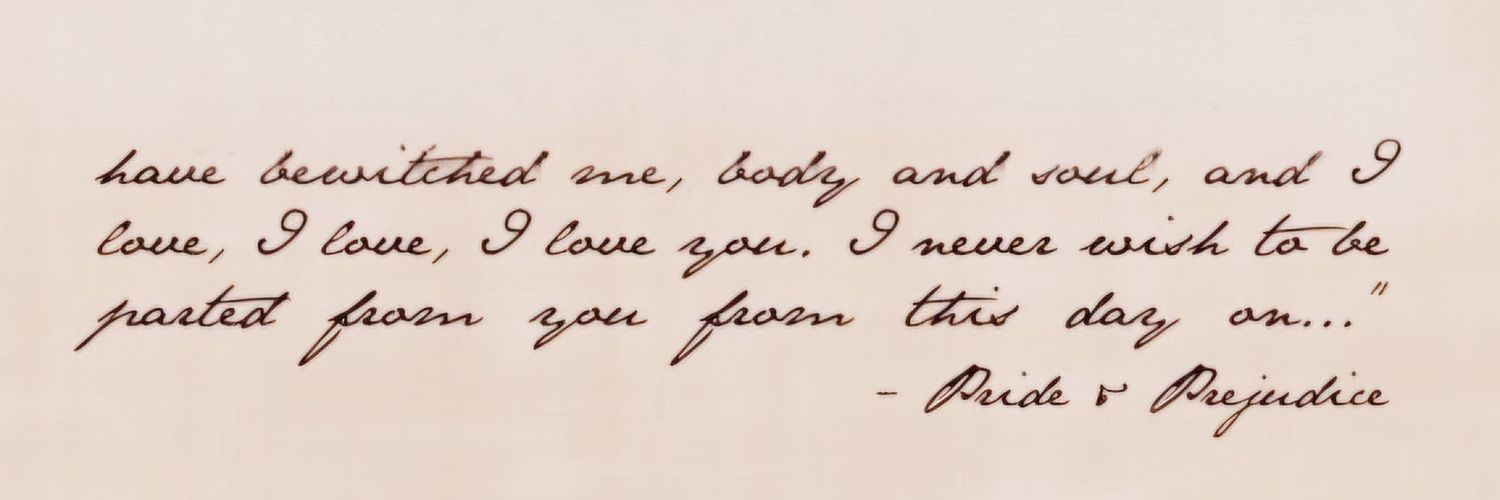 have bewitched me, body and soul, and I
love, I love, I love you. I never wish to be
parted from you from this day on..."
- Pride & Prejudice